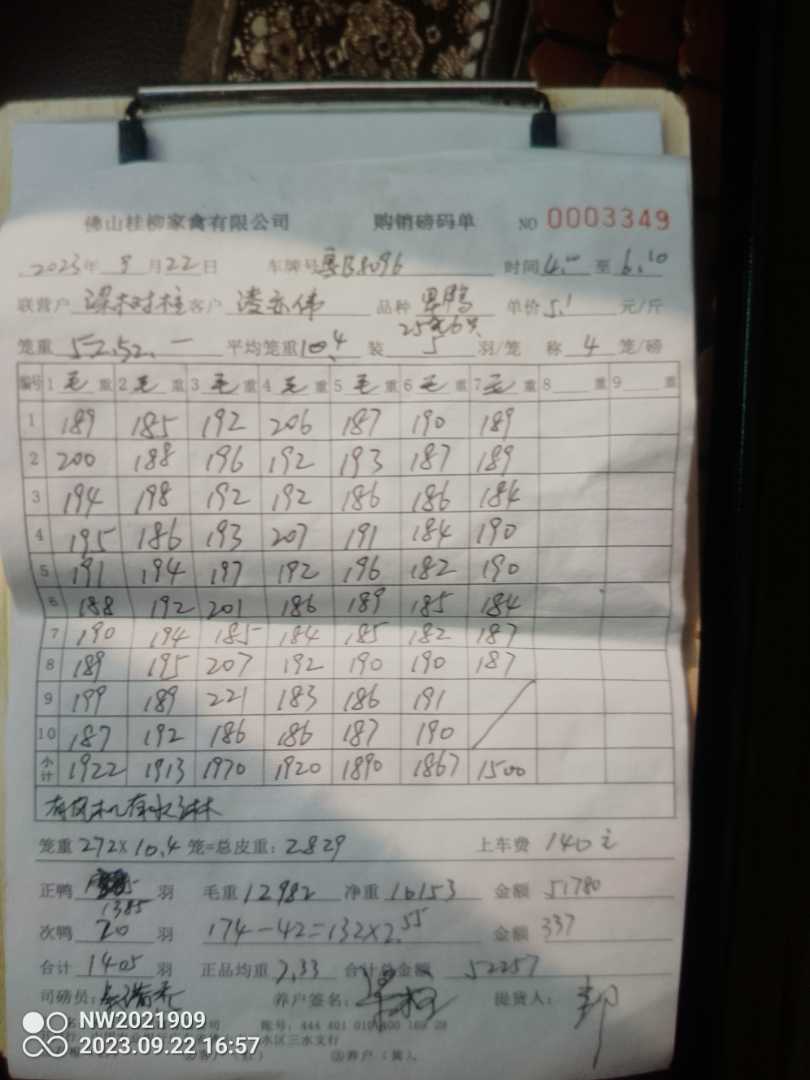 佛山桂柳家禽有限公司 购销磅码单 NO 0003349
2023年 9月22日 车牌号 8096 时间4.00 至 6.10
联营户 梁树柱 客户 凌亦伟 品种 单价5.1 元/斤
笼重 52.52.一 平均笼重10.4 装 5 羽/笼 称 4 笼/磅
编号 1 毛 重 2 毛 重 3 毛 重 4 毛 重 5 毛 重 6 毛 重 7 毛 重 8 重 9 重
1 189 185 192 206 187 190 189
2 200 188 196 192 193 187 189
3 194 198 192 192 186 186 184
4 195 186 193 207 191 184 190
5 191 194 197 192 196 182 190
6 188 192 201 186 189 185 184
7 190 194 185 184 185 182 187
8 189 195 207 192 190 190 187
9 199 189 221 183 186 191
10 187 192 186 186 187 190
小计 1922 1913 1970 1920 1890 1867 1500
笼重 272×10.4 笼=总皮重：2829 上车费 140元
正鸭 1385 羽 毛重12982 净重 10153 金额 51780
次鸭 20 羽 174-42=132×2.55 金额 337
合计 1405 羽 正品均重 7.33 合计总金额 52257
司磅员： 养户签名： 提货人：
NW2021909
2023.09.22 16:57